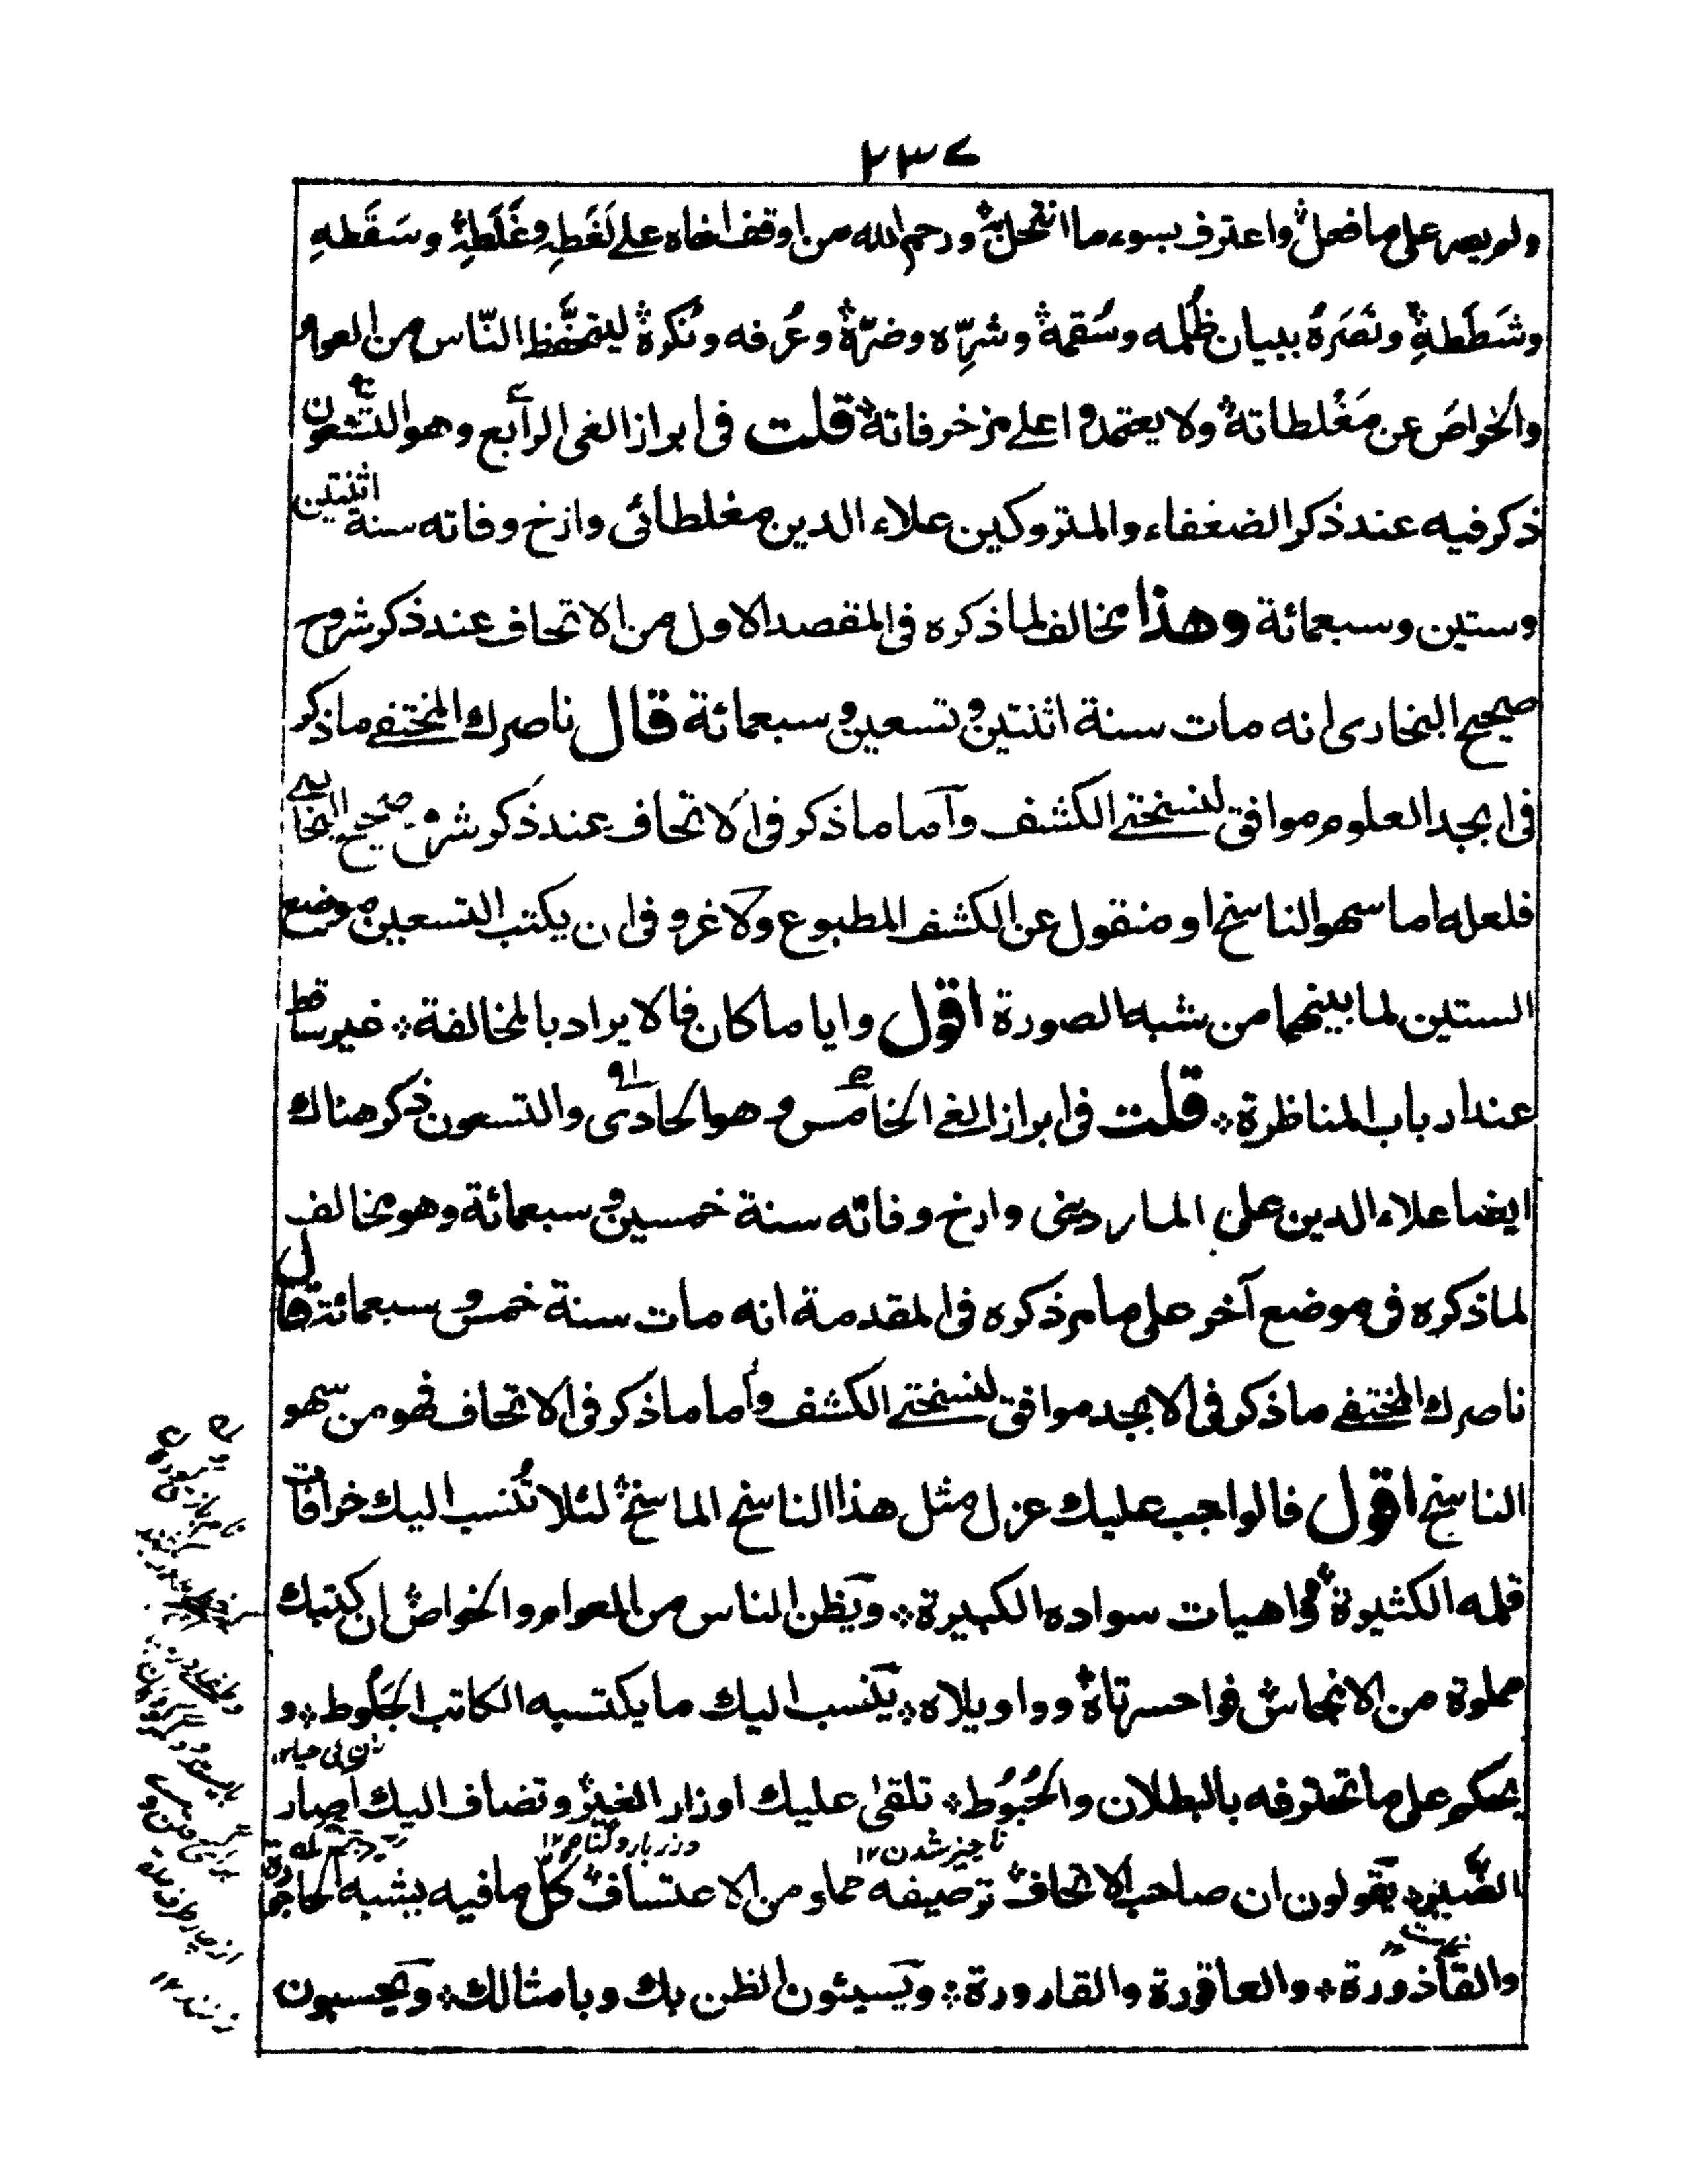 ٢٣٧
ولم يصر على ما فعل ٭ واعترف بسوء ما انتحل ٭ ورحم الله من اوقف اخاه على لَغَطِهٖ وغَلَطِهٖ ٭ وسَقَطِهٖ
وشَطَطِهٖ ٭ ونَصَرَهُ ببيان ظُلمه وسُقمه ٭ وشرِّه وضرّه ٭ وعُرفه ونُكره ٭ ليتحفَّظ النّاس من العوام
والخواص عن مَغْلطاته ٭ ولا يعتمدوا على مزخرفاته ٭ قلت فى ابراز الغى الرابع وهو التسعون
ذكر فيه عند ذكر الضعفاء والمتروكين علاء الدين مغلطائى وارخ وفاته سنة اثنتين
وستين وسبعمائة وهذا يخالف لما ذكره فى المقصد الاول من الاتحاف عند ذكر شروح
صحيح البخارى انه مات سنة اثنتين وتسعين وسبعمائة قال ناصرك المختفے ما ذكر
فى ابجد العلوم موافق لنسختے الكشف وآما ما ذكر فى الاتحاف عند ذكر شرح صحيح البخارى
فلعله اما سهو الناسخ او منقول عن الكشف المطبوع ولا غرو فى ان يكتب التسعين موضع
الستين لما بينهما من شبه الصورة اقول وايا ما كان فالايراد بالمخالفة ٭ غير ساقط
عند ارباب المناظرة ٭ قلت فى ابراز الغے الخامس وهو الحادى والتسعون ذكر هناك
ايضا علاء الدين على الماردينى وارخ وفاته سنة خمسين وسبعمائة وهو مخالف
لما ذكره فى موضع آخر على ما مر ذكره فى المقدمة انه مات سنة خمس وسبعمائة قال
ناصرك المختفے ما ذكر فى الابجد موافق لنسختے الكشف وأما ما ذكر فى الاتحاف فهو من سهو
الناسخ اقول فالواجب عليك عزل مثل هذا الناسخ الماسخ ٭ لئلا تُنسب اليك خرافات
قلمه الكثيرة ٭ وواهيات سواده الكبيرة ٭ ويَظن الناس من العوام والخواص ٭ ان كتبك
مملوة من الانجاس ٭ فواحسرتاه ٭ وواويلاه ٭ يَنسب اليك ما يكتسبه الكاتب الجَلُوط ٭ و
يحكم على ما تحترفه بالبطلان والحُبُوط ٭ تلقى عليك اوزار الغير ٭ وتضاف اليك آصار
ناچيز شدن ١٢ وزر بار وگناه ١٢
الضَير ٭ يَقولون ان صاحب الاتحاف ٭ ترصيفه حماو من الاعتساف ٭ كل ما فيه يشبه
والقاذورة ٭ والعاقورة والقارورة ٭ ويَسيئون الظن بك وبامثالك ٭ ويَحسبون